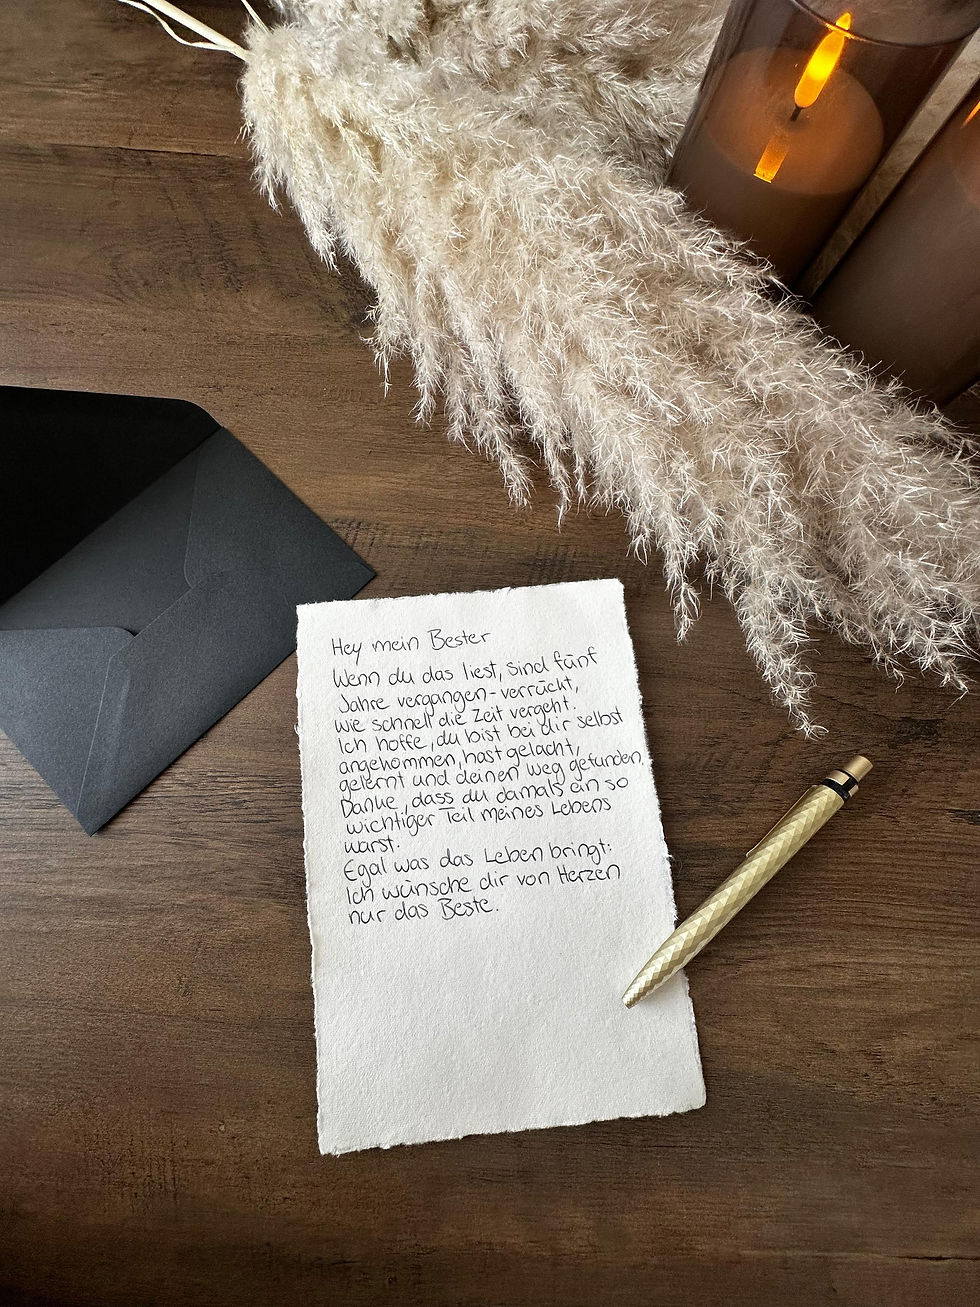 Hey mein Bester
Wenn du das liest, sind fünf
Jahre vergangen - verrückt,
wie schnell die Zeit vergeht.
Ich hoffe, du bist bei dir selbst
angekommen, hast gelacht,
gelernt und deinen Weg gefunden.
Danke, dass du damals ein so
wichtiger Teil meines Lebens
warst.
Egal was das Leben bringt:
Ich wünsche dir von Herzen
nur das Beste.